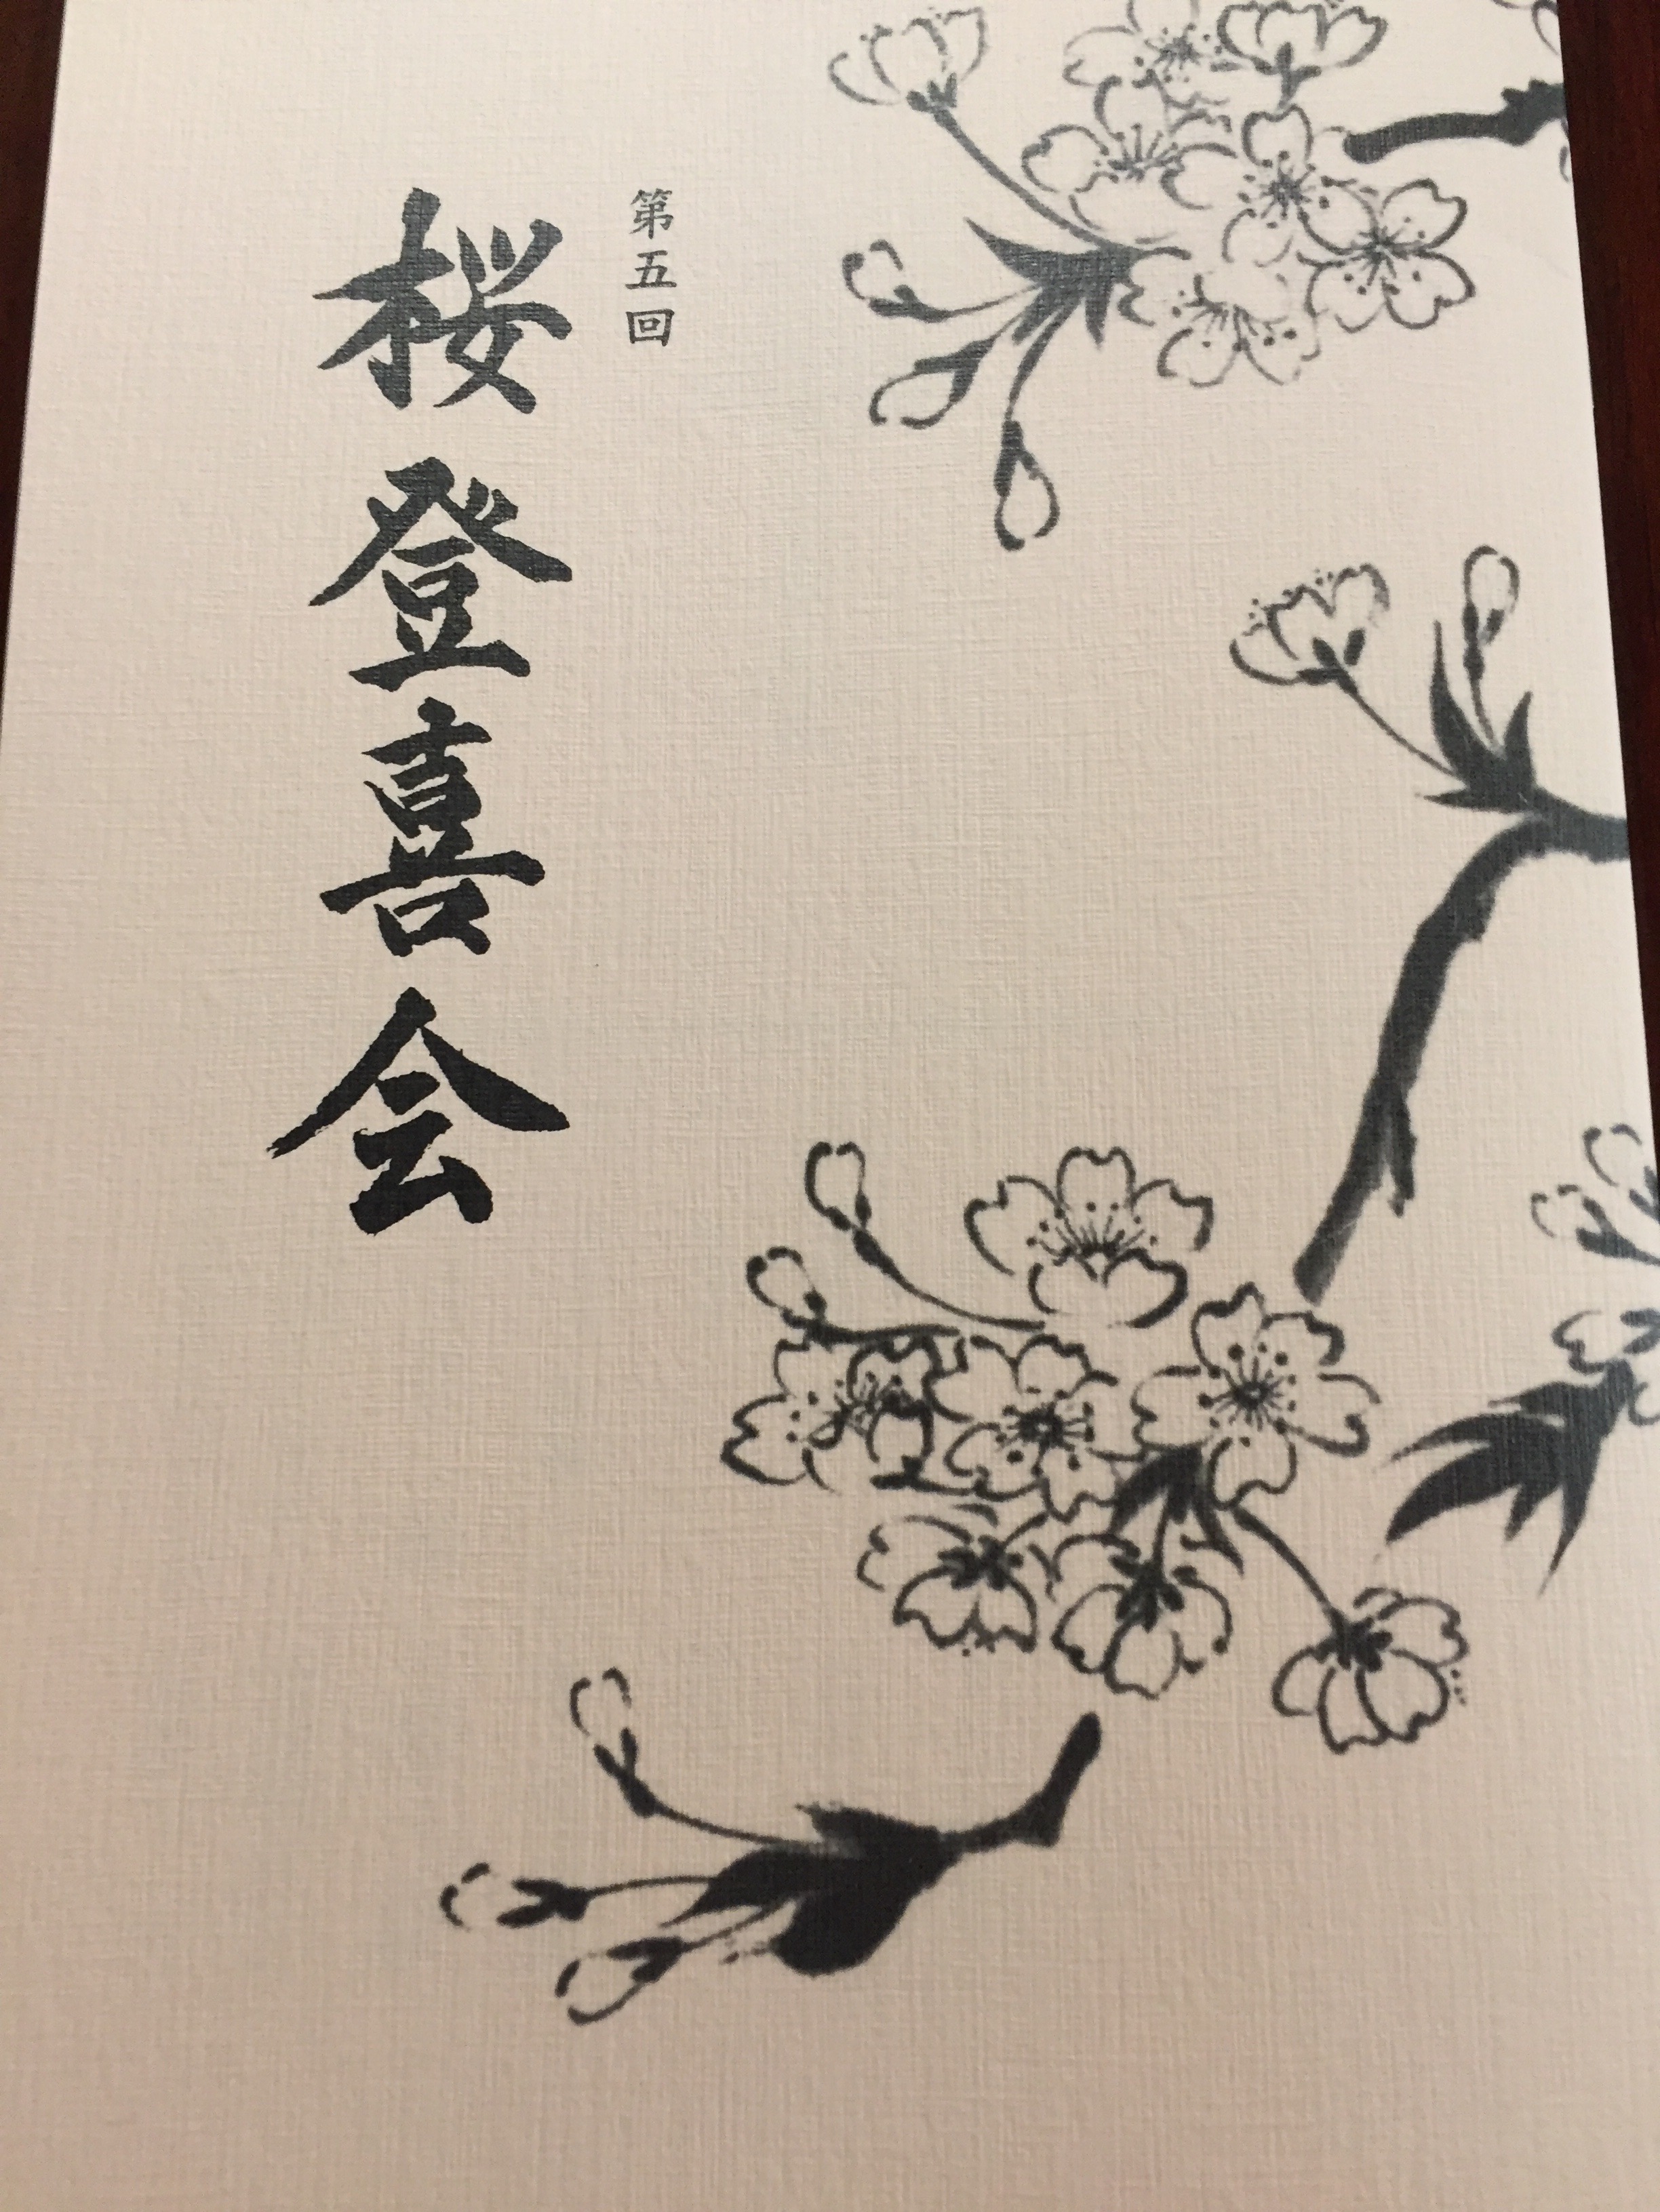 第五回
桜登喜会